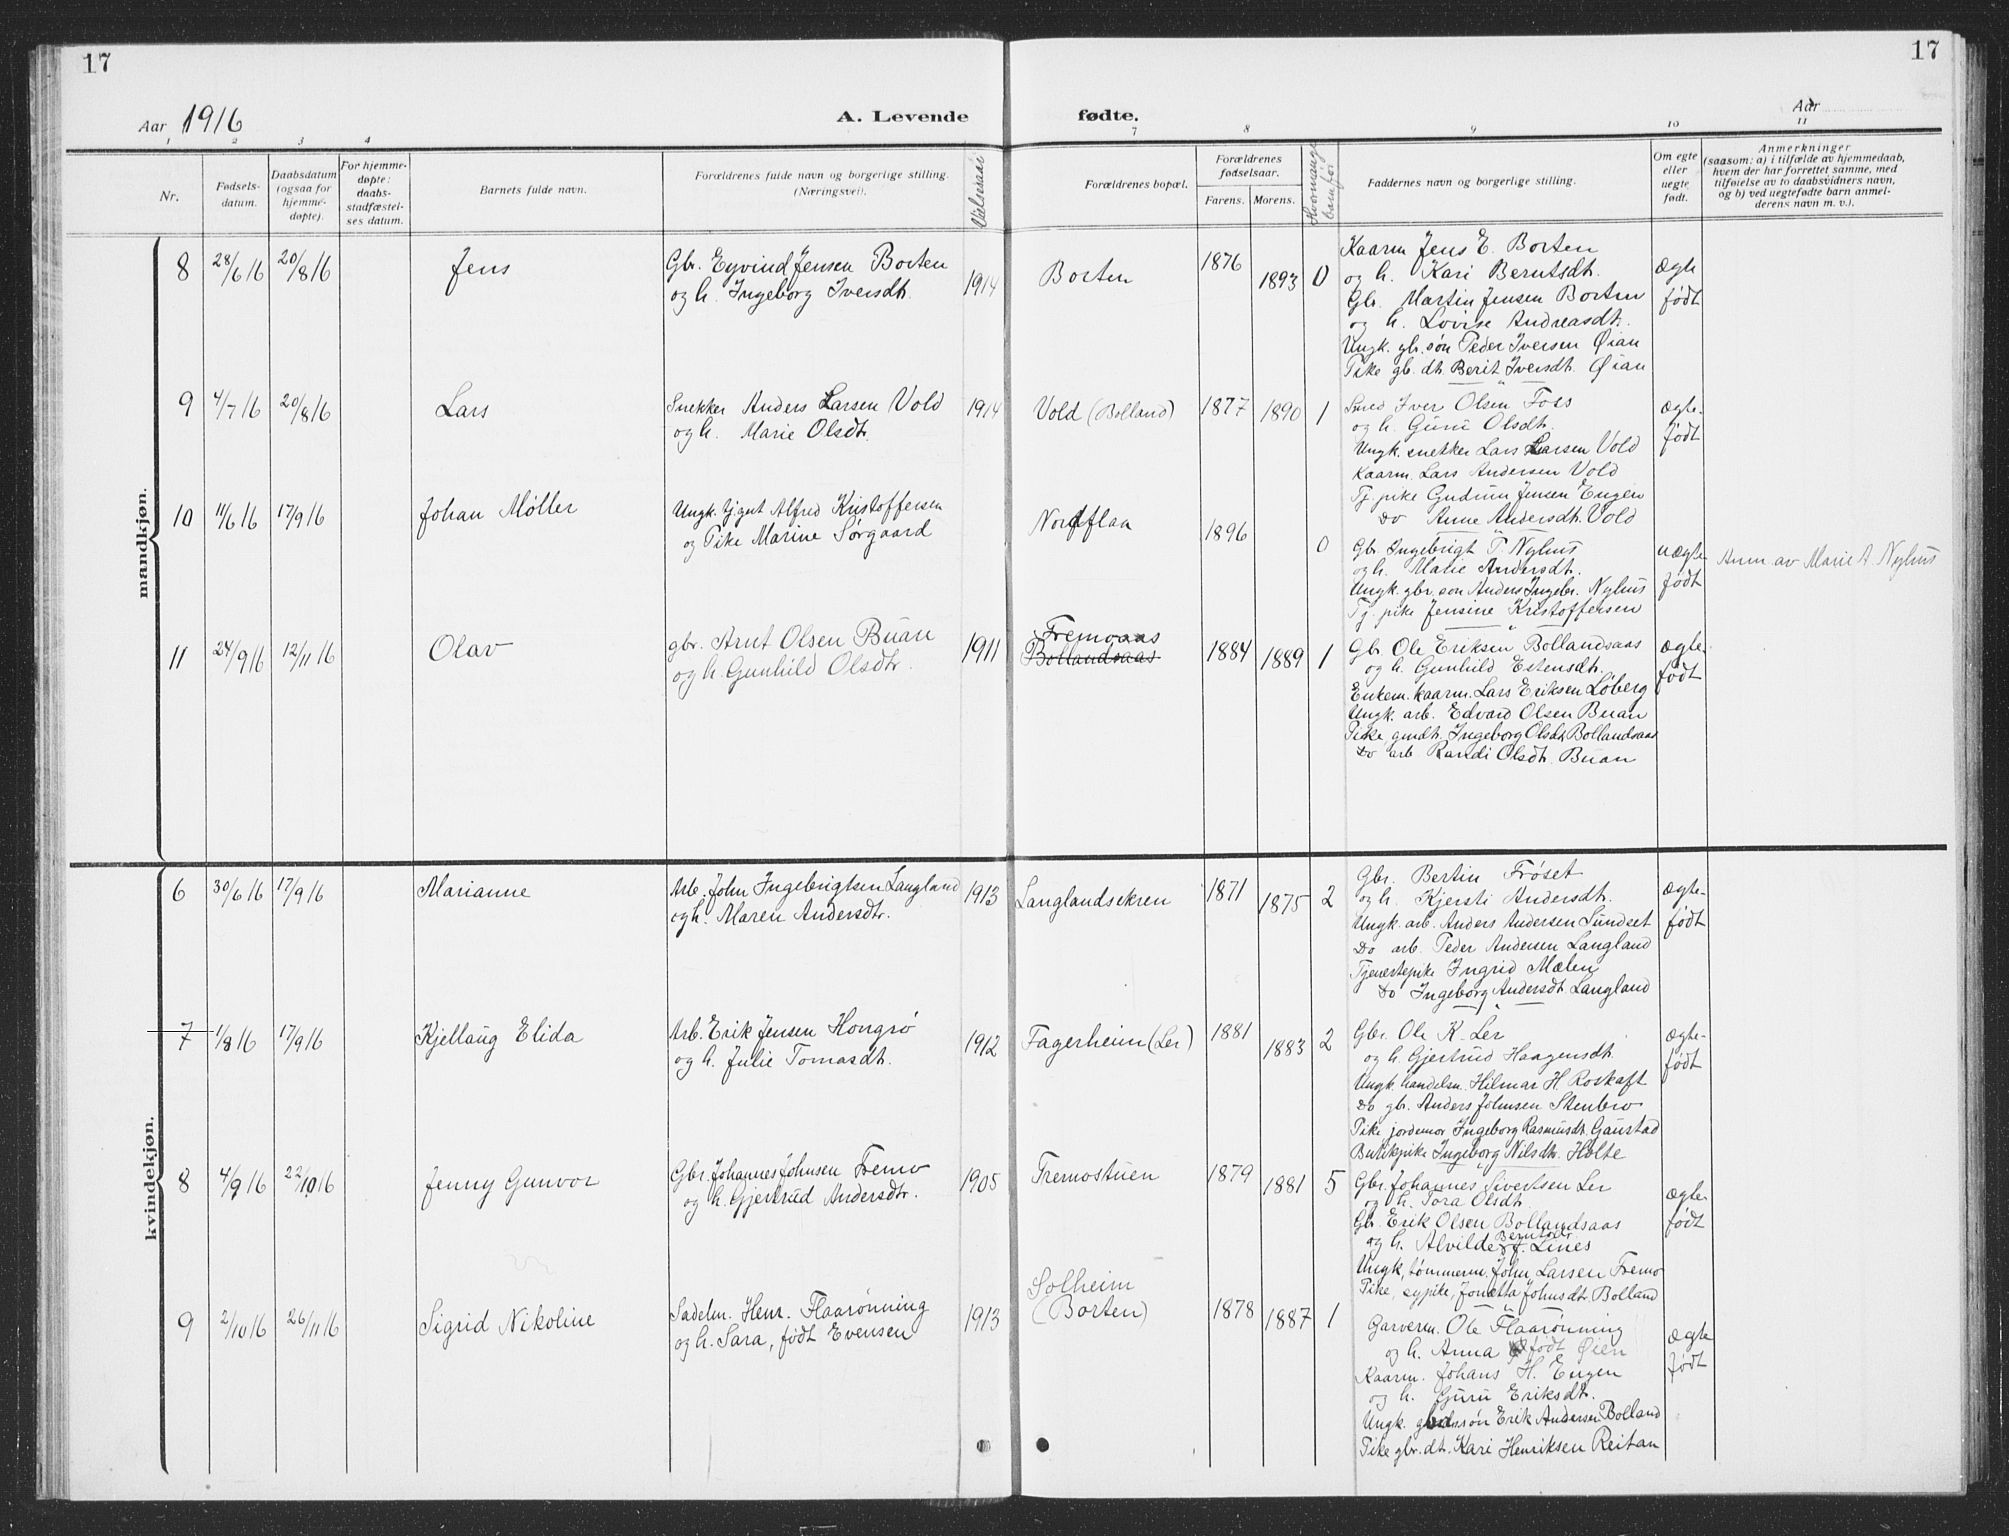 17
17
Aar 1916
A. Levende
fødte.
Aar
1 2 3 4 7 8 9 10 11
Nr.
Fødsels-
datum.
Daabsdatum
(ogsaa for
hjemme-
døpte).
For hjemme-
døpte:
daabs-
stadfæstel-
ses datum.
Barnets fulde navn.
Forældrenes fulde navn og borgerlige stilling.
(Næringsvei).
Forældrenes bopæl.
Forældrenes
fødselsaar.
Farens. Morens.
Hvormange
barn før
Faddernes navn og borgerlige stilling.
Om egte
eller
uegte
født.
Anmerkninger
(saasom: a) i tilfælde av hjemmedaab,
hvem der har forrettet samme, med
tilføielse av to daabsvidners navn,
og b) ved uegtefødte barn anmel-
derens navn m. v.).
mandkjøn.
8 28/6 16 20/8 16 Jens
Gbr. Eyvind Jensen Borten
og h. Ingeborg Iversdt.
1914 Borten 1876 1893 0
Kaarm Jens E. Borten
og h. Kari Berntsdt.
Gbr. Martin Jensen Borten
og h. Lovise Andreasdt.
Ungk. gbr. søn Peder Iversen Øian
Pike gb. dt. Berit Iversdt. Øian
Ægte
født
9 4/7 16 20/8 16 Lars
Snekker Anders Larsen Vold
og h. Marie Olsdt.
1914 Vold (Bolland) 1877 1890 1
Smed Iver Olsen Foss
og h. Guru Olsdt.
Ungk. snekker Lars Larsen Vold
Kaarm. Lars Andersen Vold
Tj. pike Gudrun Jensen Engen
Do Anne Andersdt. Vold
ægte-
født
10 11/6 16 17/9 16 Johan Møller
Ungk. tj.gut Alfred Kristoffersen
og Pike Marine Sørgaard
Nordflaa 1896 0
Gbr Ingebrigt P. Nyhus
og h. Marie Andersdt.
Ungk. gbr. søn Anders Ingebr. Nyhus
Tj. pike Jensine Kristoffersen
uægte-
født
Anm. av Marie A. Nyhus
11 24/9 16 12/11 16 Olav
gbr. Arnt Olsen Buan
og h. Gunhild Olsdtr.
1911
Fremoaas
Bollandsaas
1884 1889 1
Gbr. Ole Eriksen Bollandsaas
og h. Gunhild Estensdt.
Enkem. kaarm. Lars Eriksen Løberg
Ungk. arb. Edvard Olsen Buan
Pike, gmdt. Ingeborg Olsdt Bollandsaas
Do arb. Randi Olsdt. Buan
ægte-
født
kvindekjøn.
6 30/6 16 17/9 16 Marianne
Arb. John Ingebrigtsen Langland
og h. Maren Andersdtr.
1913 Langlandsekren 1871 1875 2
Gbr. Bertin Frøset
og h. Kjersti Andersdt.
Ungk. arb. Anders Andersen Sundset
Do arb. Peder Andersen Langland
Tjenestepike Ingrid Mælen
Do Ingeborg Andersdt. Langland
ægte-
født
7 1/8 16 17/9 16 Kjellaug Elida
Arb. Erik Jensen Hongrø
og h. Julie Tomasdt.
1912 Fagerheim (Ler) 1881 1883 2
Gbr. Ole K. Ler
og h. Gjertrud Haagensdt.
Ungk. handelsm. Hilmar H. Roskaft
Do gbr. Anders Johnsen Stenbro
Pike jordemor Ingeborg Rasmusdt. Gaustad
Butikpike Ingeborg Nilsdt. Holte
ægte-
født
8 4/9 16 22/10 16 Jenny Gunvor
Gbr. Johannes Johnsen Fremo
og h. Gjertrud Andersdtr.
1905 Fremostuen 1879 1881 5
Gbr. Johannes Sivertsen Ler
og h. Tora Olsdt.
Gbr. Erik Olsen Bollandsaas
og h. Alvilde f. Lines
Ungk, tømmerm. John Larsen Fremo
Pike, sypike, Jonetta Johnsdt. Bolland
ægte-
født
9 2/10 16 26/11 16 Sigrid Nikoline
Sadelm. Henr. Flaarønning
og h. Sara, født Evensen
1913
Solheim
(Borten)
1878 1887 1
Garverm. Ole Flaarønning
og h. Anna født Øien
Kaarm. Johans H. Engen
og h. Guru Eriksdt.
Ungk. Erik Andersen Bolland
Pike gbr. dt. Kari Henriksen Reitan
ægte
født